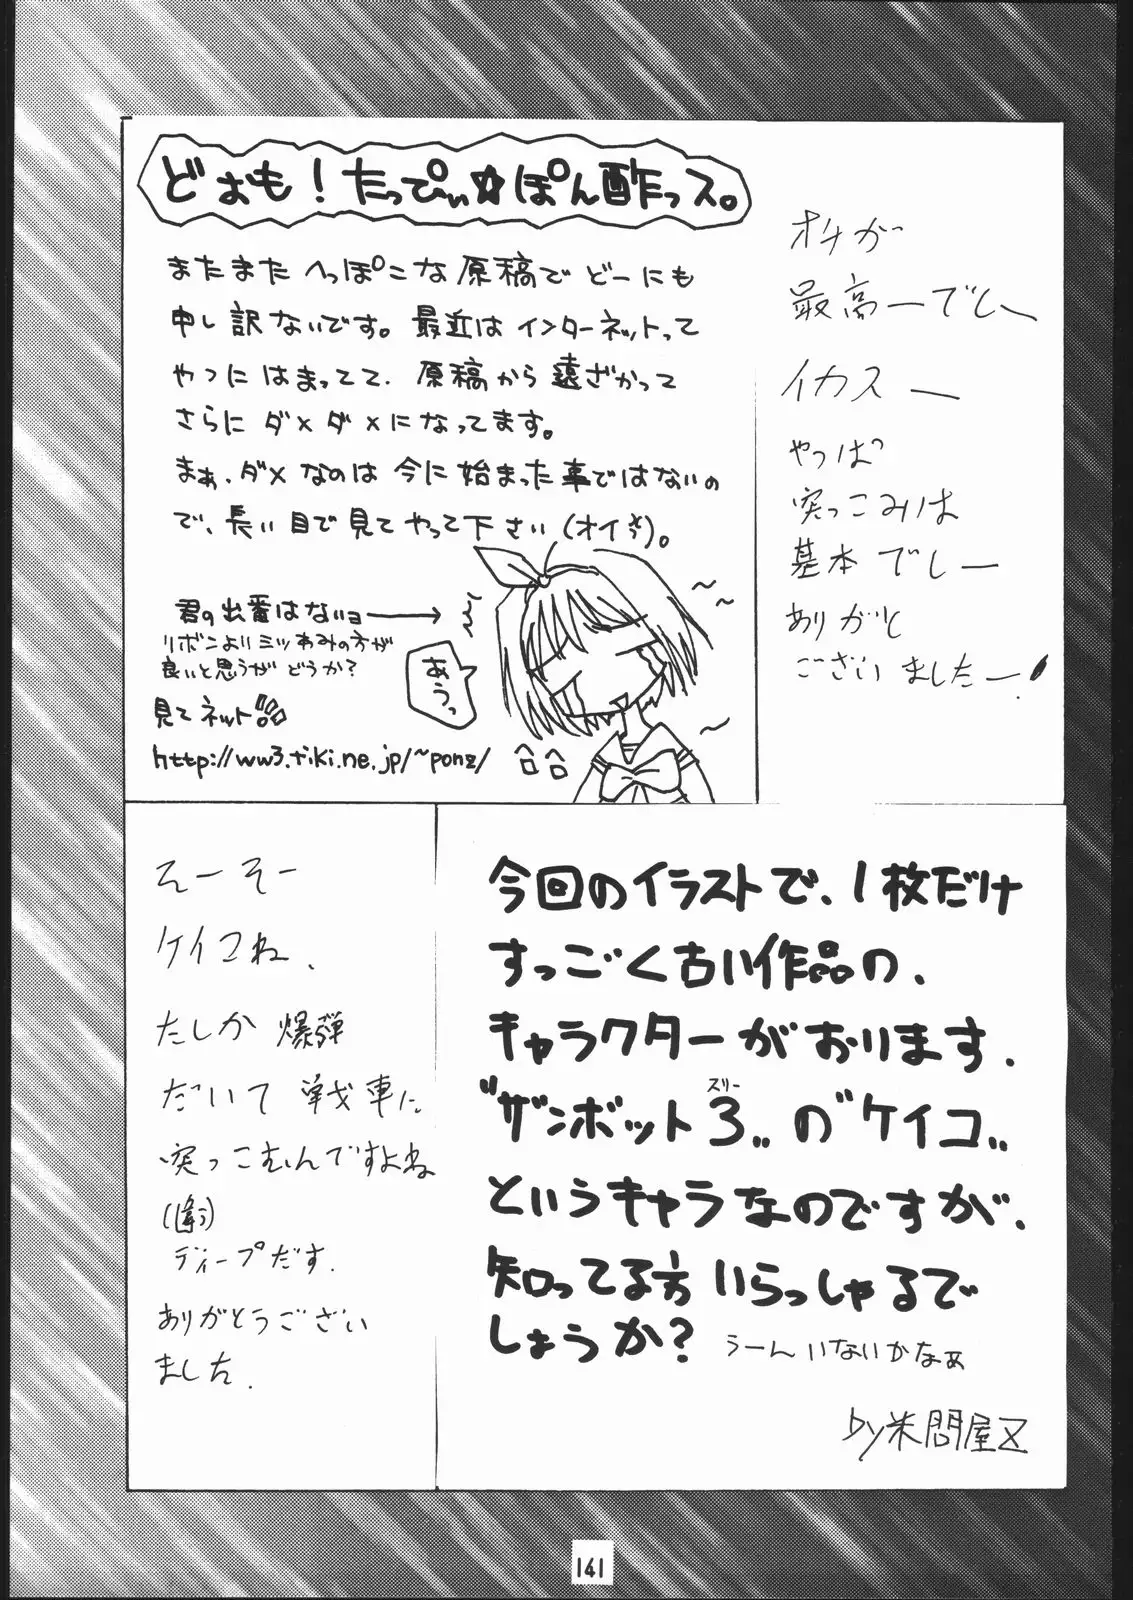 どぉも！たっぴぃ☆ぽん酢っス。
またまた へっぽこな 原稿で どーにも
申し訳ないです。最近は インターネットって
やつに はまってて、原稿から 遠ざかって
さらに ダメダメになってます。
まぁ、ダメなのは 今に 始まった事ではないの
で、長い目で見てやって下さい(オイっ)。
君の出番はないョ→
リボンより三ツあみの方が
良いと思うが どうか？
あうっ
見てネット
http://ww3.tiki.ne.jp/~ponz/
オチが
最高ーでしﾞ
イカスー
やっぱっ
突っこみは
基本でしー
ありがと
ございましたー!
そーそー
ケイコね、
たしか 爆弾
だいて 戦車に
突っこむんですよね
(違う)
ディープだす.
ありがとうござい
ました.
今回のイラストで、1枚だけ
すっごく古い作品の、
キャラクターがおります.
スリー
"ザンボット3"の"ケイコ"
というキャラなのですが、
知ってる方 いらっしゃるで
しょうか?
うーん いないかなぁ
by米問屋Z
141